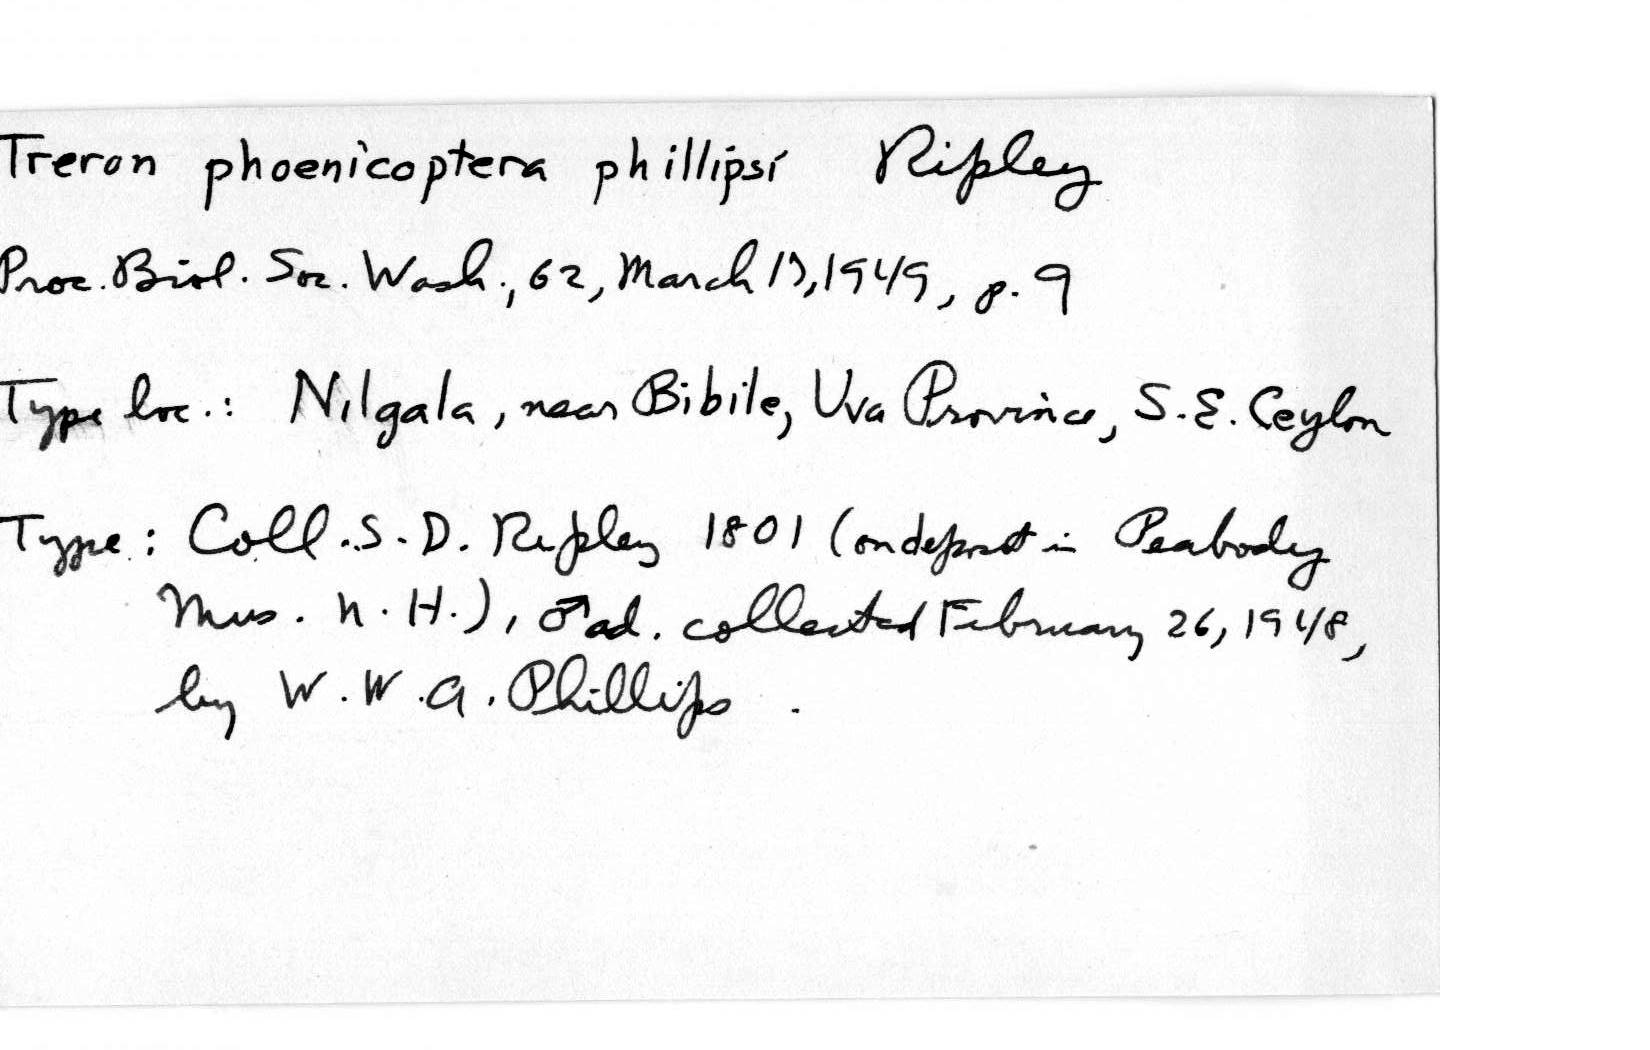 Treron phoenicoptera phillipsi Ripley
Proc. Biol. Soc. Wash., 62, March 17, 1949, p. 9
Type loc.: Nilgala, near Bibile, Uva Province, S.E. Ceylon
Type: Coll. S. D. Ripley 1801 (on deposit in Peabody
Mus. N. H.), ♂ ad. collected February 26, 1948,
by W. W. A. Phillips .